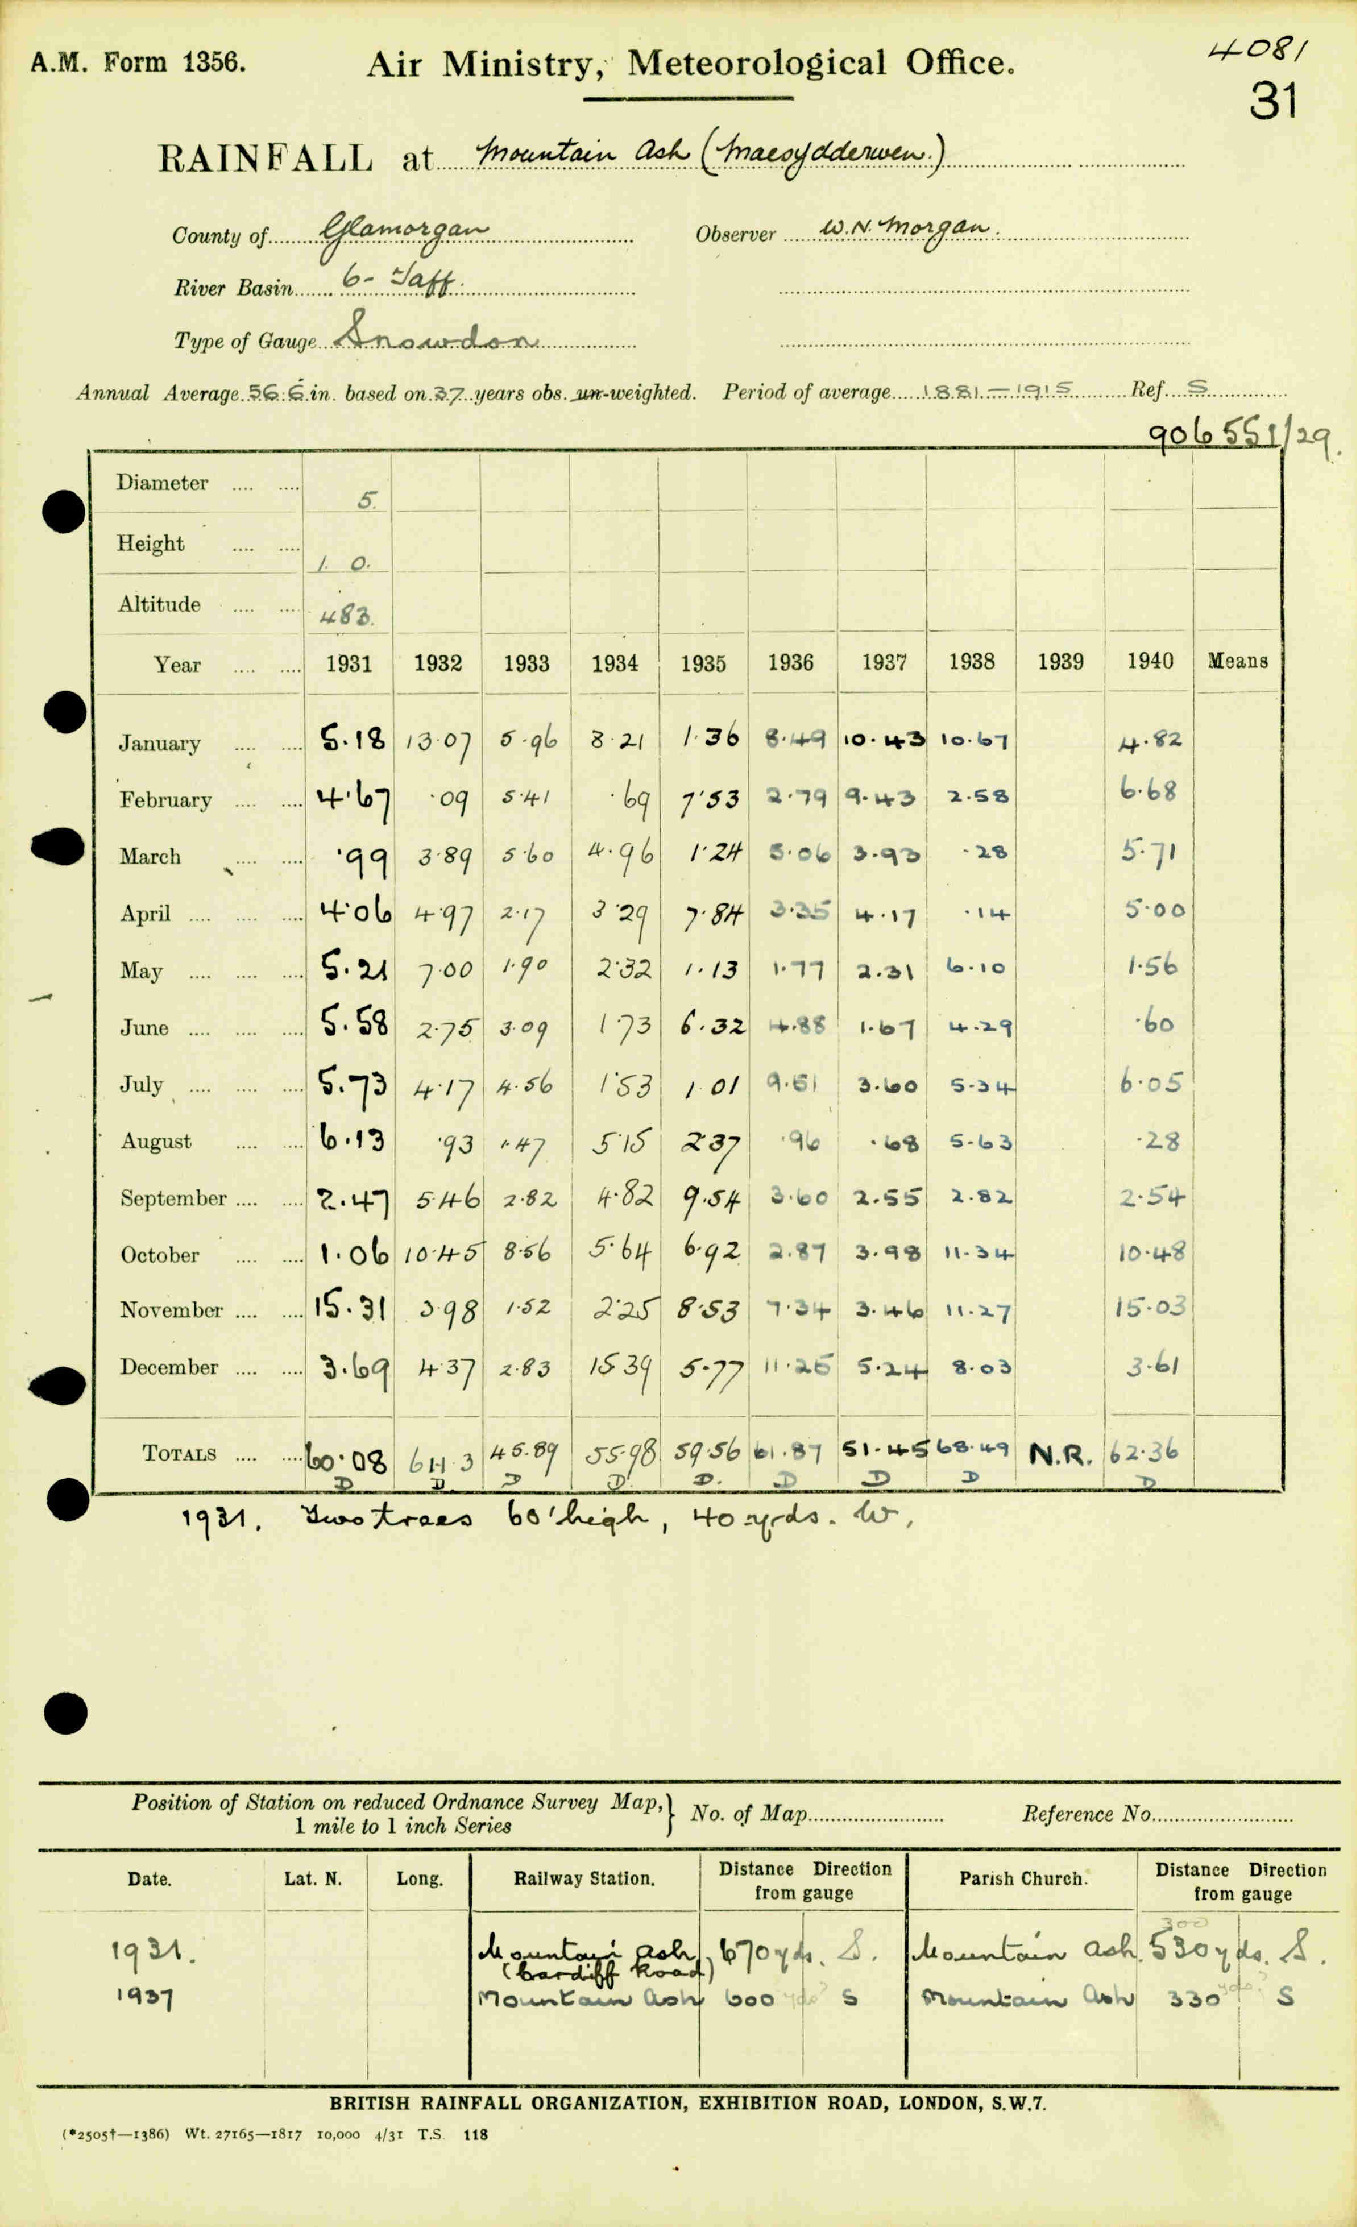 4081
A.M. Form 1356. Air Ministry, Meteorological Office.
31
RAINFALL at Mountain Ash (Maesydderwen.)
County of Glamorgan Observer W.N. Morgan.
River Basin 6- Taff.
Type of Gauge Snowdon
Annual Average 56.6 in. based on 37 years obs. un-weighted. Period of average 1881-1915 Ref. S
906551/29.
Diameter 5.
Height 1. 0.
Altitude 483.
Year 1931 1932 1933 1934 1935 1936 1937 1938 1939 1940 Means
January 5.18 13.07 5.96 8.21 1.36 8.49 10.43 10.67 4.82
February 4.67 .09 5.41 .69 7.53 2.79 9.43 2.58 6.68
March .99 3.89 5.60 4.96 1.24 5.06 3.93 .28 5.71
April 4.06 4.97 2.17 3.29 7.84 3.35 4.17 .14 5.00
May 5.21 7.00 1.90 2.32 1.13 1.77 2.31 6.10 1.56
June 5.58 2.75 3.09 1.73 6.32 4.88 1.67 4.29 .60
July 5.73 4.17 4.56 1.53 1.01 9.51 3.60 5.34 6.05
August 6.13 .93 1.47 5.15 2.37 .96 .68 5.63 .28
September 2.47 5.46 2.82 4.82 9.54 3.60 2.55 2.82 2.54
October 1.06 10.45 8.56 5.64 6.92 2.87 3.98 11.34 10.48
November 15.31 3.98 1.52 2.25 8.53 7.34 3.46 11.27 15.03
December 3.69 4.37 2.83 15.39 5.77 11.25 5.24 8.03 3.61
TOTALS 60.08 61.13 45.89 55.98 59.56 61.87 51.45 68.49 N.R. 62.36
D D. D D. D. D D D D
1931. Two trees 60' high, 40 yds. W.
Position of Station on reduced Ordnance Survey Map, } No. of Map Reference No.
1 mile to 1 inch Series
Date. Lat. N. Long. Railway Station. Distance Direction from gauge Parish Church. Distance Direction from gauge
300
1931. Mountain Ash 670 yds. S. Mountain Ash. 530 yds. S.
(Cardiff Road)
1937 Mountain Ash 600 yds? S Mountain Ash 330 yds? S
BRITISH RAINFALL ORGANIZATION, EXHIBITION ROAD, LONDON, S.W.7.
(*2505†—1386) Wt. 27165—1817 10,000 4/31 T.S. 118